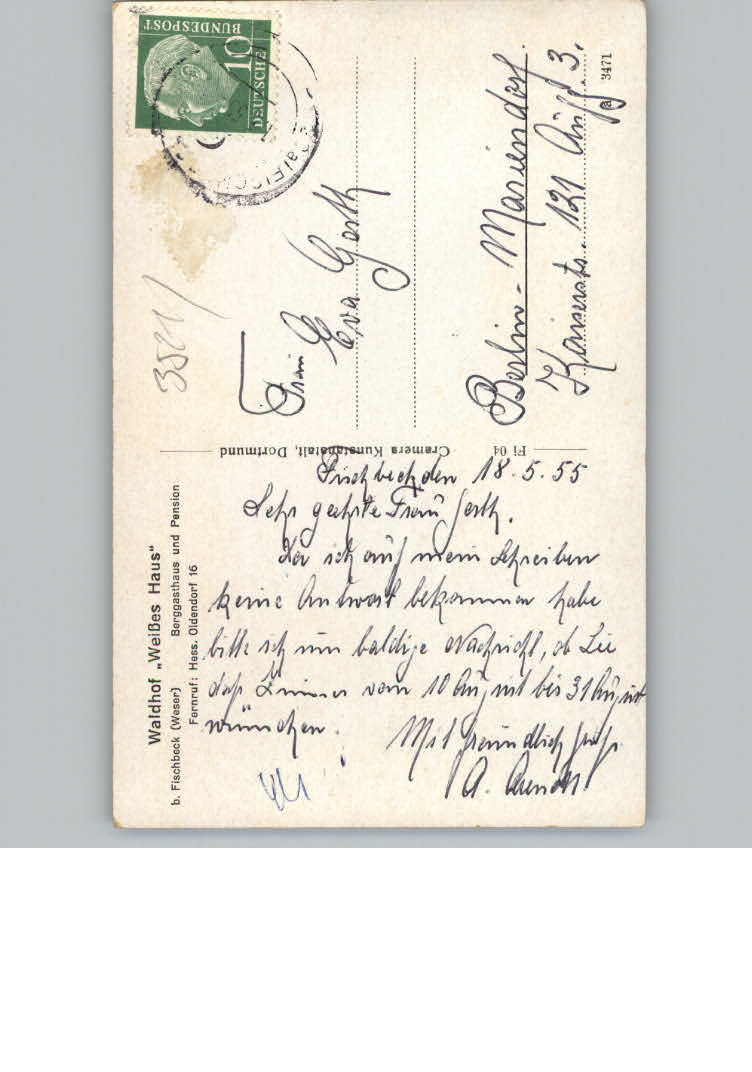 Waldhof „Weißes Haus"
b. Fischbeck (Weser) Berggasthaus und Pension
Fernruf: Hess. Oldendorf 16
Fischbeck den 18.5.55
Sehr geehrte Frau Gerth.
Da ich auf mein Schreiben
keine Antwort bekommen habe
bitte ich um baldige Nachricht, ob Sie
daß Zimmer vom 10 August bis 31 August
wünschen.
Mit freundlich Gruß
A.
Cramers Kunstanstalt, Dortmund
Fi 04
DEUTSCHE
BUNDESPOST
10
Frau
Eva Gerth
Berlin-Mariendorf.
Kaiserstr. 121 Aufg. 3.
3471